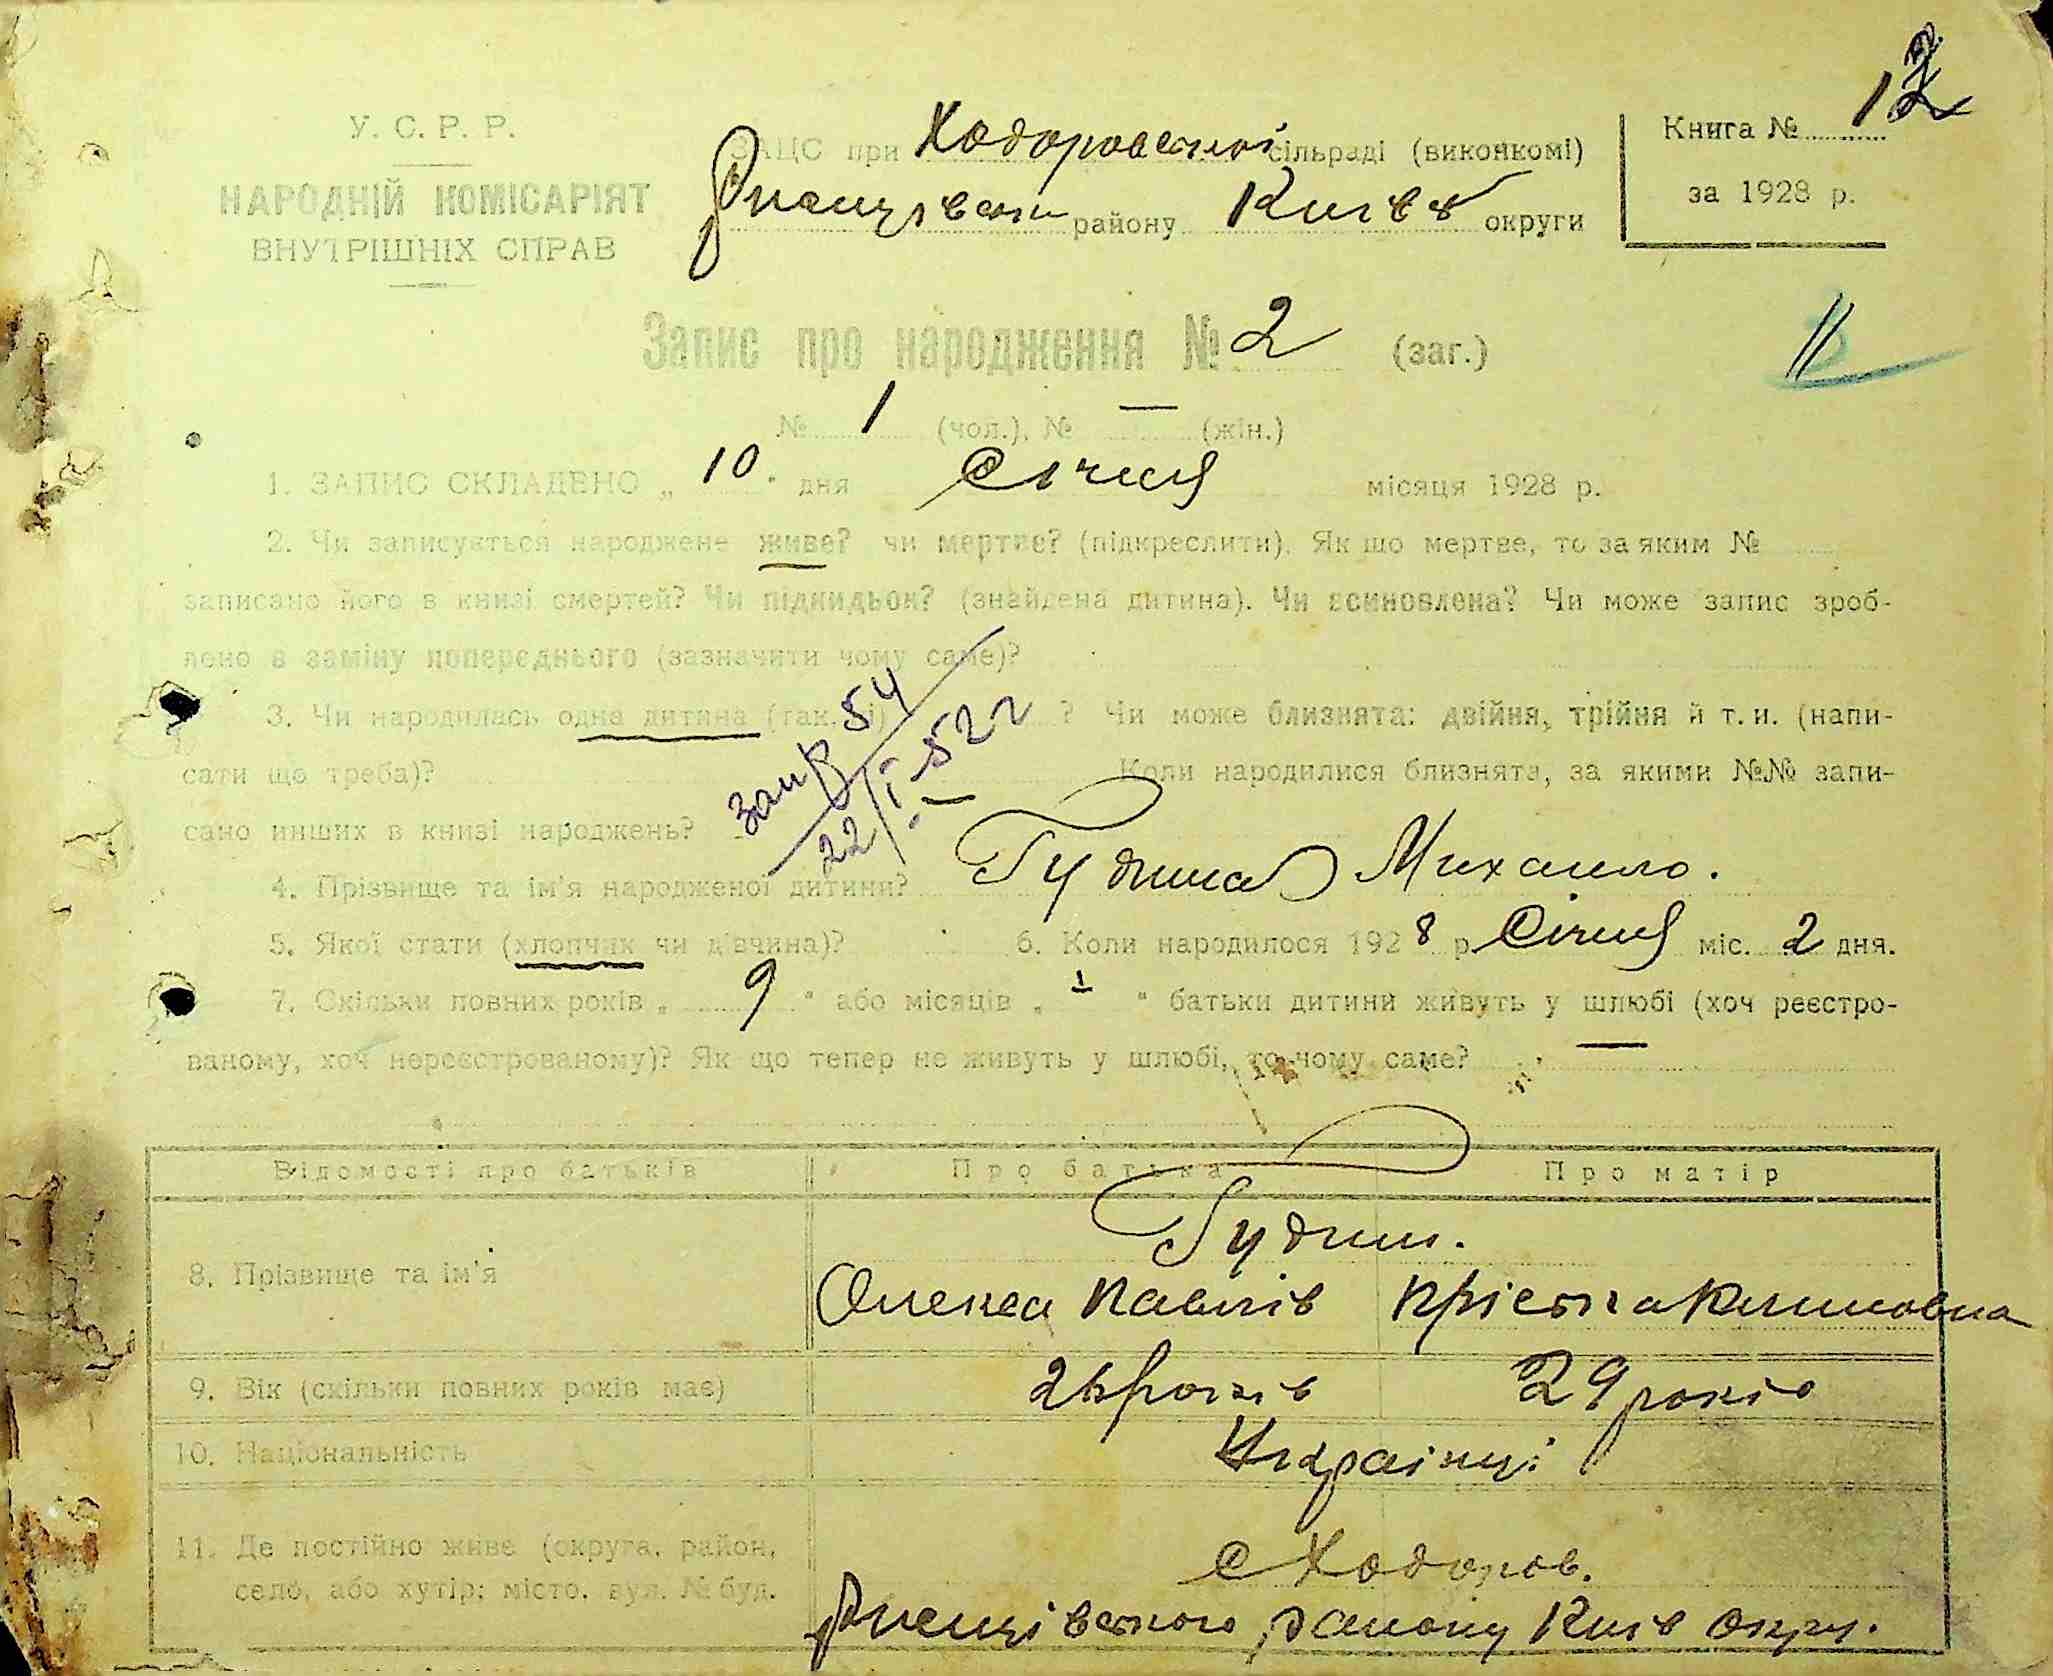 У. С. Р. Р.
НАРОДНІЙ КОМІСАРІЯТ
ВНУТРІШНІХ СПРАВ
ЗАЦС при Ходоровській сільраді (виконкомі)
Ржищівськ району Київс округи
Книга № 12
за 1928 р.
Запис про народження № 2 (заг.)
11
№ 1 (чол.), № — (жін.)
1. ЗАПИС СКЛАДЕНО „ 10 " дня Січня місяця 1928 р.
2. Чи записується народжене живе? чи мертве? (підкреслити). Як що мертве, то за яким №
записано його в книзі смертей? Чи підкидьок? (знайдена дитина). Чи всиновлена? Чи може запис зроб-
лено в заміну попереднього (зазначити чому саме)?
3. Чи народилась одна дитина (так, ні) ? Чи може близнята: двійня, трійня й т. и. (напи-
сати що треба)? Коли народилися близнята, за якими №№ запи-
сано инших в книзі народжень? —
54
22/I-52 г
4. Прізвище та ім'я народженої дитини? Гудима Михаило.
5. Якої стати (хлопчик чи дівчина)? 6. Коли народилося 1928 р. Січня міс. 2 дня.
7. Скільки повних років „ 9 " або місяців „ " батьки дитини живуть у шлюбі (хоч реєстро-
ваному, хоч нереєстрованому)? Як що тепер не живуть у шлюбі, то чому саме?
Відомості про батьків Про батька Про матір
8. Прізвище та ім'я Гудими.
Олекса Павлів Крістка Климовна
9. Вік (скільки повних років має) років 29 років
10. Національність Українці
11. Де постійно живе (округа, район, с Ходоров.
село, або хутір; місто, вул. № буд. Ржищівського району Київ окру.